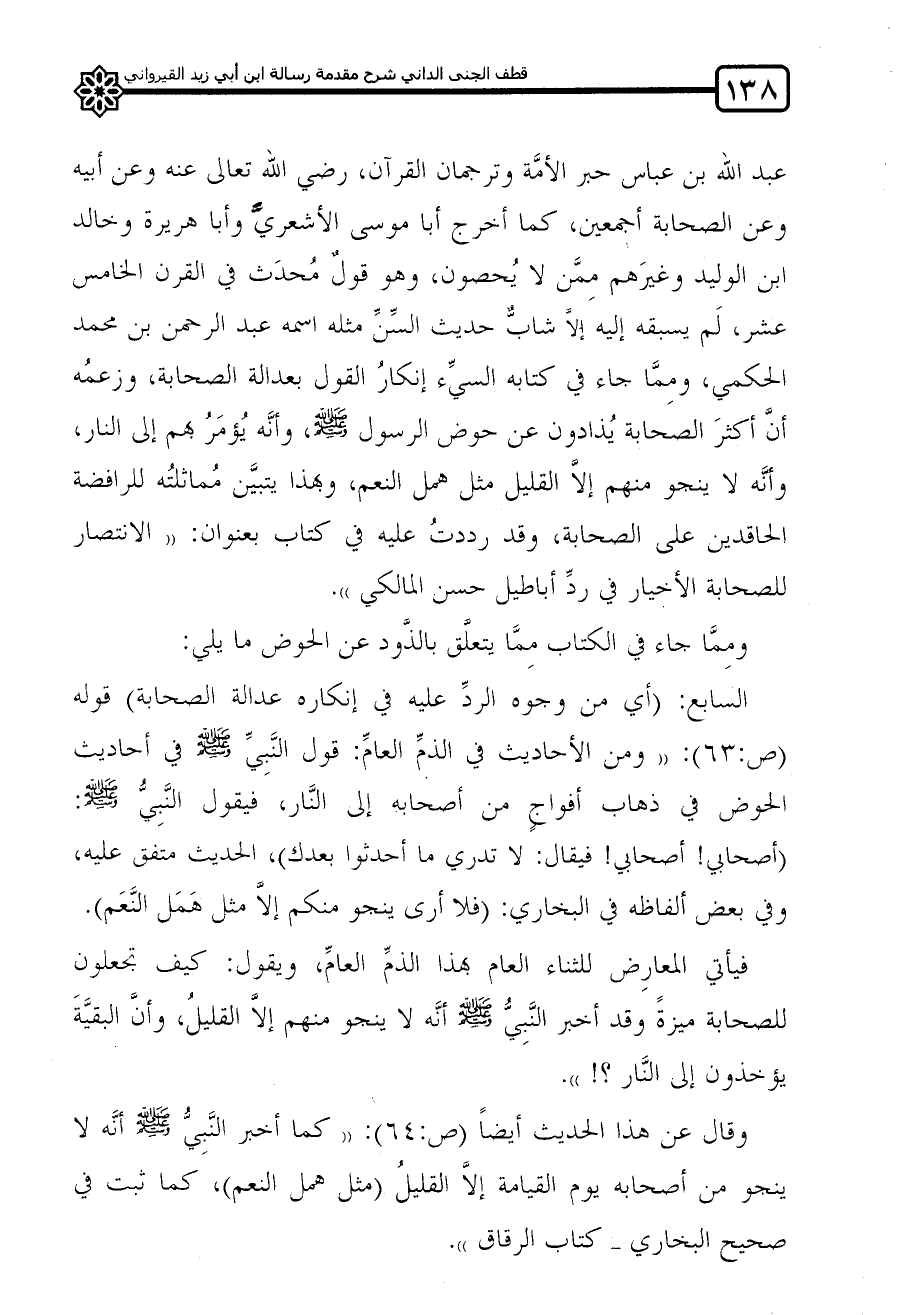 قطف الجنى الداني شرح مقدمة رسالة ابن أبي زيد القيرواني
١٣٨
عبد الله بن عباس حبر الأمَّة وترجمان القرآن، رضي الله تعالى عنه وعن أبيه
وعن الصحابة أجمعين، كما أخرج أبا موسى الأشعريَّ وأبا هريرة وخالد
ابن الوليد وغيرَهم مِمَّن لا يُحصون، وهو قولٌ مُحدَث في القرن الخامس
عشر، لَم يسبقه إليه إلاَّ شابٌّ حديث السِّنِّ مثله اسمه عبد الرحمن بن محمد
الحكمي، ومِمَّا جاء في كتابه السيِّء إنكارُ القول بعدالة الصحابة، وزعمُه
أنَّ أكثرَ الصحابة يُذادون عن حوض الرسول ﷺ، وأنَّه يُؤمَرُ بهم إلى النار،
وأنَّه لا ينجو منهم إلاَّ القليل مثل همل النعم، وبهذا يتبيَّن مُماثلتُه للرافضة
الحاقدين على الصحابة، وقد رددتُ عليه في كتاب بعنوان: (( الانتصار
للصحابة الأخيار في ردِّ أباطيل حسن المالكي )).
ومِمَّا جاء في الكتاب مِمَّا يتعلَّق بالذَّود عن الحوض ما يلي:
السابع: (أي من وجوه الردِّ عليه في إنكاره عدالة الصحابة) قوله
(ص:٦٣): (( ومن الأحاديث في الذمِّ العامِّ: قول النَّبِيِّ ﷺ في أحاديث
الحوض في ذهاب أفواجٍ من أصحابه إلى النَّار، فيقول النَّبِيُّ ﷺ:
(أصحابي! أصحابي! فيقال: لا تدري ما أحدثوا بعدك)، الحديث متفق عليه،
وفي بعض ألفاظه في البخاري: (فلا أرى ينجو منكم إلاَّ مثل هَمَل النَّعَم).
فيأتي المعارِض للثناء العام بهذا الذمِّ العامِّ، ويقول: كيف تجعلون
للصحابة ميزةً وقد أخبر النَّبِيُّ ﷺ أنَّه لا ينجو منهم إلاَّ القليلُ، وأنَّ البقيَّةَ
يؤخذون إلى النَّار ؟! )).
وقال عن هذا الحديث أيضاً (ص:٦٤): (( كما أخبر النَّبِيُّ ﷺ أنَّه لا
ينجو من أصحابه يوم القيامة إلاَّ القليلُ (مثل همل النعم)، كما ثبت في
صحيح البخاري ـ كتاب الرقاق )).